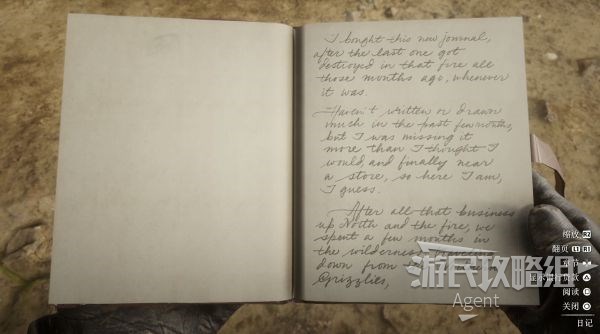 I bought this new journal,
after the last one got
destroyed in that fire all
those months ago, whenever
it was.
Haven't written or drawn
much in the past few months,
but I was missing it
more than I thought I
would, and finally near
a store, so here I am,
I guess.
After all that business
up North and the fire, we
spent a few months in
the wilderness,
down from
Grizzlies,
游民攻略组
Agent
缩放 R2
翻页 L1 R1
章节
阅读
关闭
日记